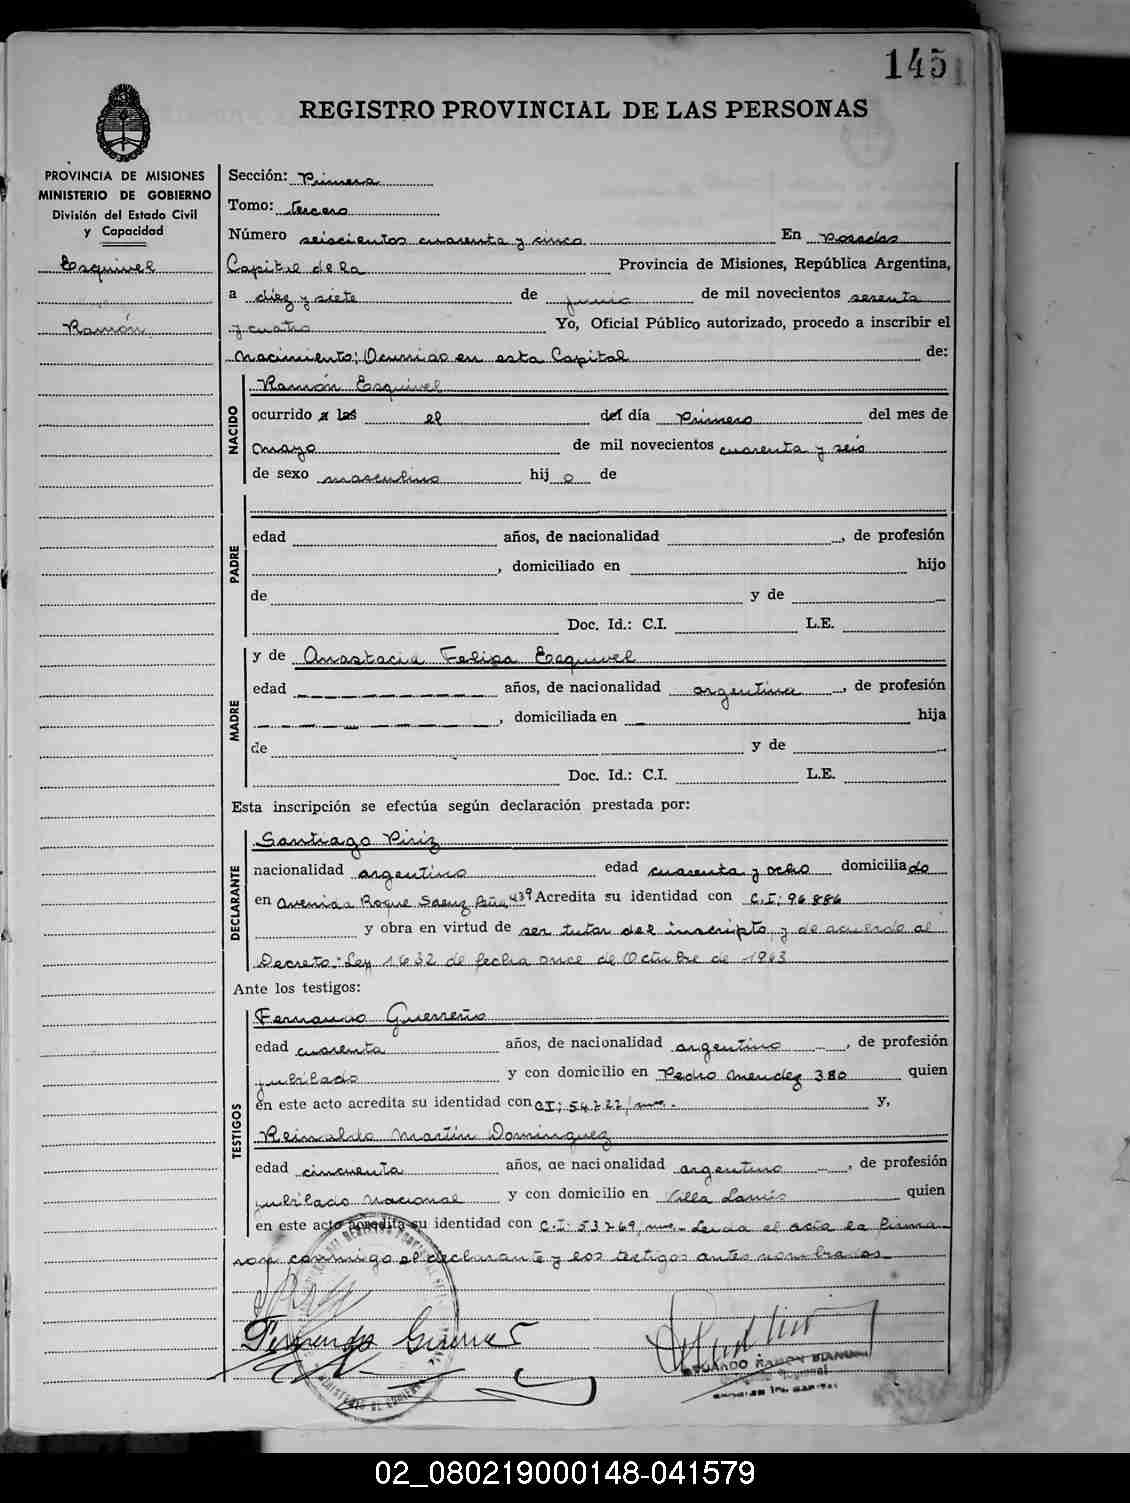 145
REGISTRO PROVINCIAL DE LAS PERSONAS
PROVINCIA DE MISIONES
MINISTERIO DE GOBIERNO
División del Estado Civil
y Capacidad
Esquivel
Ramón
Sección: Primera
Tomo: tercero
Número seiscientos cuarenta y cinco En Posadas
Capital de la Provincia de Misiones, República Argentina,
a diez y siete de junio de mil novecientos sesenta
y cuatro Yo, Oficial Público autorizado, procedo a inscribir el
nacimiento: Ocurrido en esta Capital de:
NACIDO
Ramón Esquivel
ocurrido a las el del día Primero del mes de
mayo de mil novecientos cuarenta y seis
de sexo masculino hijo de
PADRE
edad años, de nacionalidad , de profesión
, domiciliado en hijo
de y de
Doc. Id.: C.I. L.E.
MADRE
y de Anastacia Felipa Esquivel
edad años, de nacionalidad argentina, de profesión
, domiciliada en hija
de y de
Doc. Id.: C.I. L.E.
Esta inscripción se efectúa según declaración prestada por:
DECLARANTE
Santiago Piriz
nacionalidad argentino edad cuarenta y ocho domiciliado
en Avenida Roque Saenz Peña 439 Acredita su identidad con C.I: 96886
y obra en virtud de ser tutor del inscripto y de acuerdo al
Decreto: Ley 1632 de fecha once de Octubre de 1963
Ante los testigos:
TESTIGOS
Fernando Guerreño
edad cuarenta años, de nacionalidad argentino, de profesión
jubilado y con domicilio en Pedro Mendez 380 quien
en este acto acredita su identidad con CI: 54722/ y,
Reinaldo Martín Dominguez
edad cincuenta años, de nacionalidad argentino, de profesión
jubilado nacional y con domicilio en Villa Lanús quien
en este acto acredita su identidad con C.I: 53769, Leida el acta la firma-
ron conmigo el declarante y los testigos antes nombrados
Fernando
EDUARDO RAMON
MINISTERIO DE GOBIERNO
02_080219000148-041579